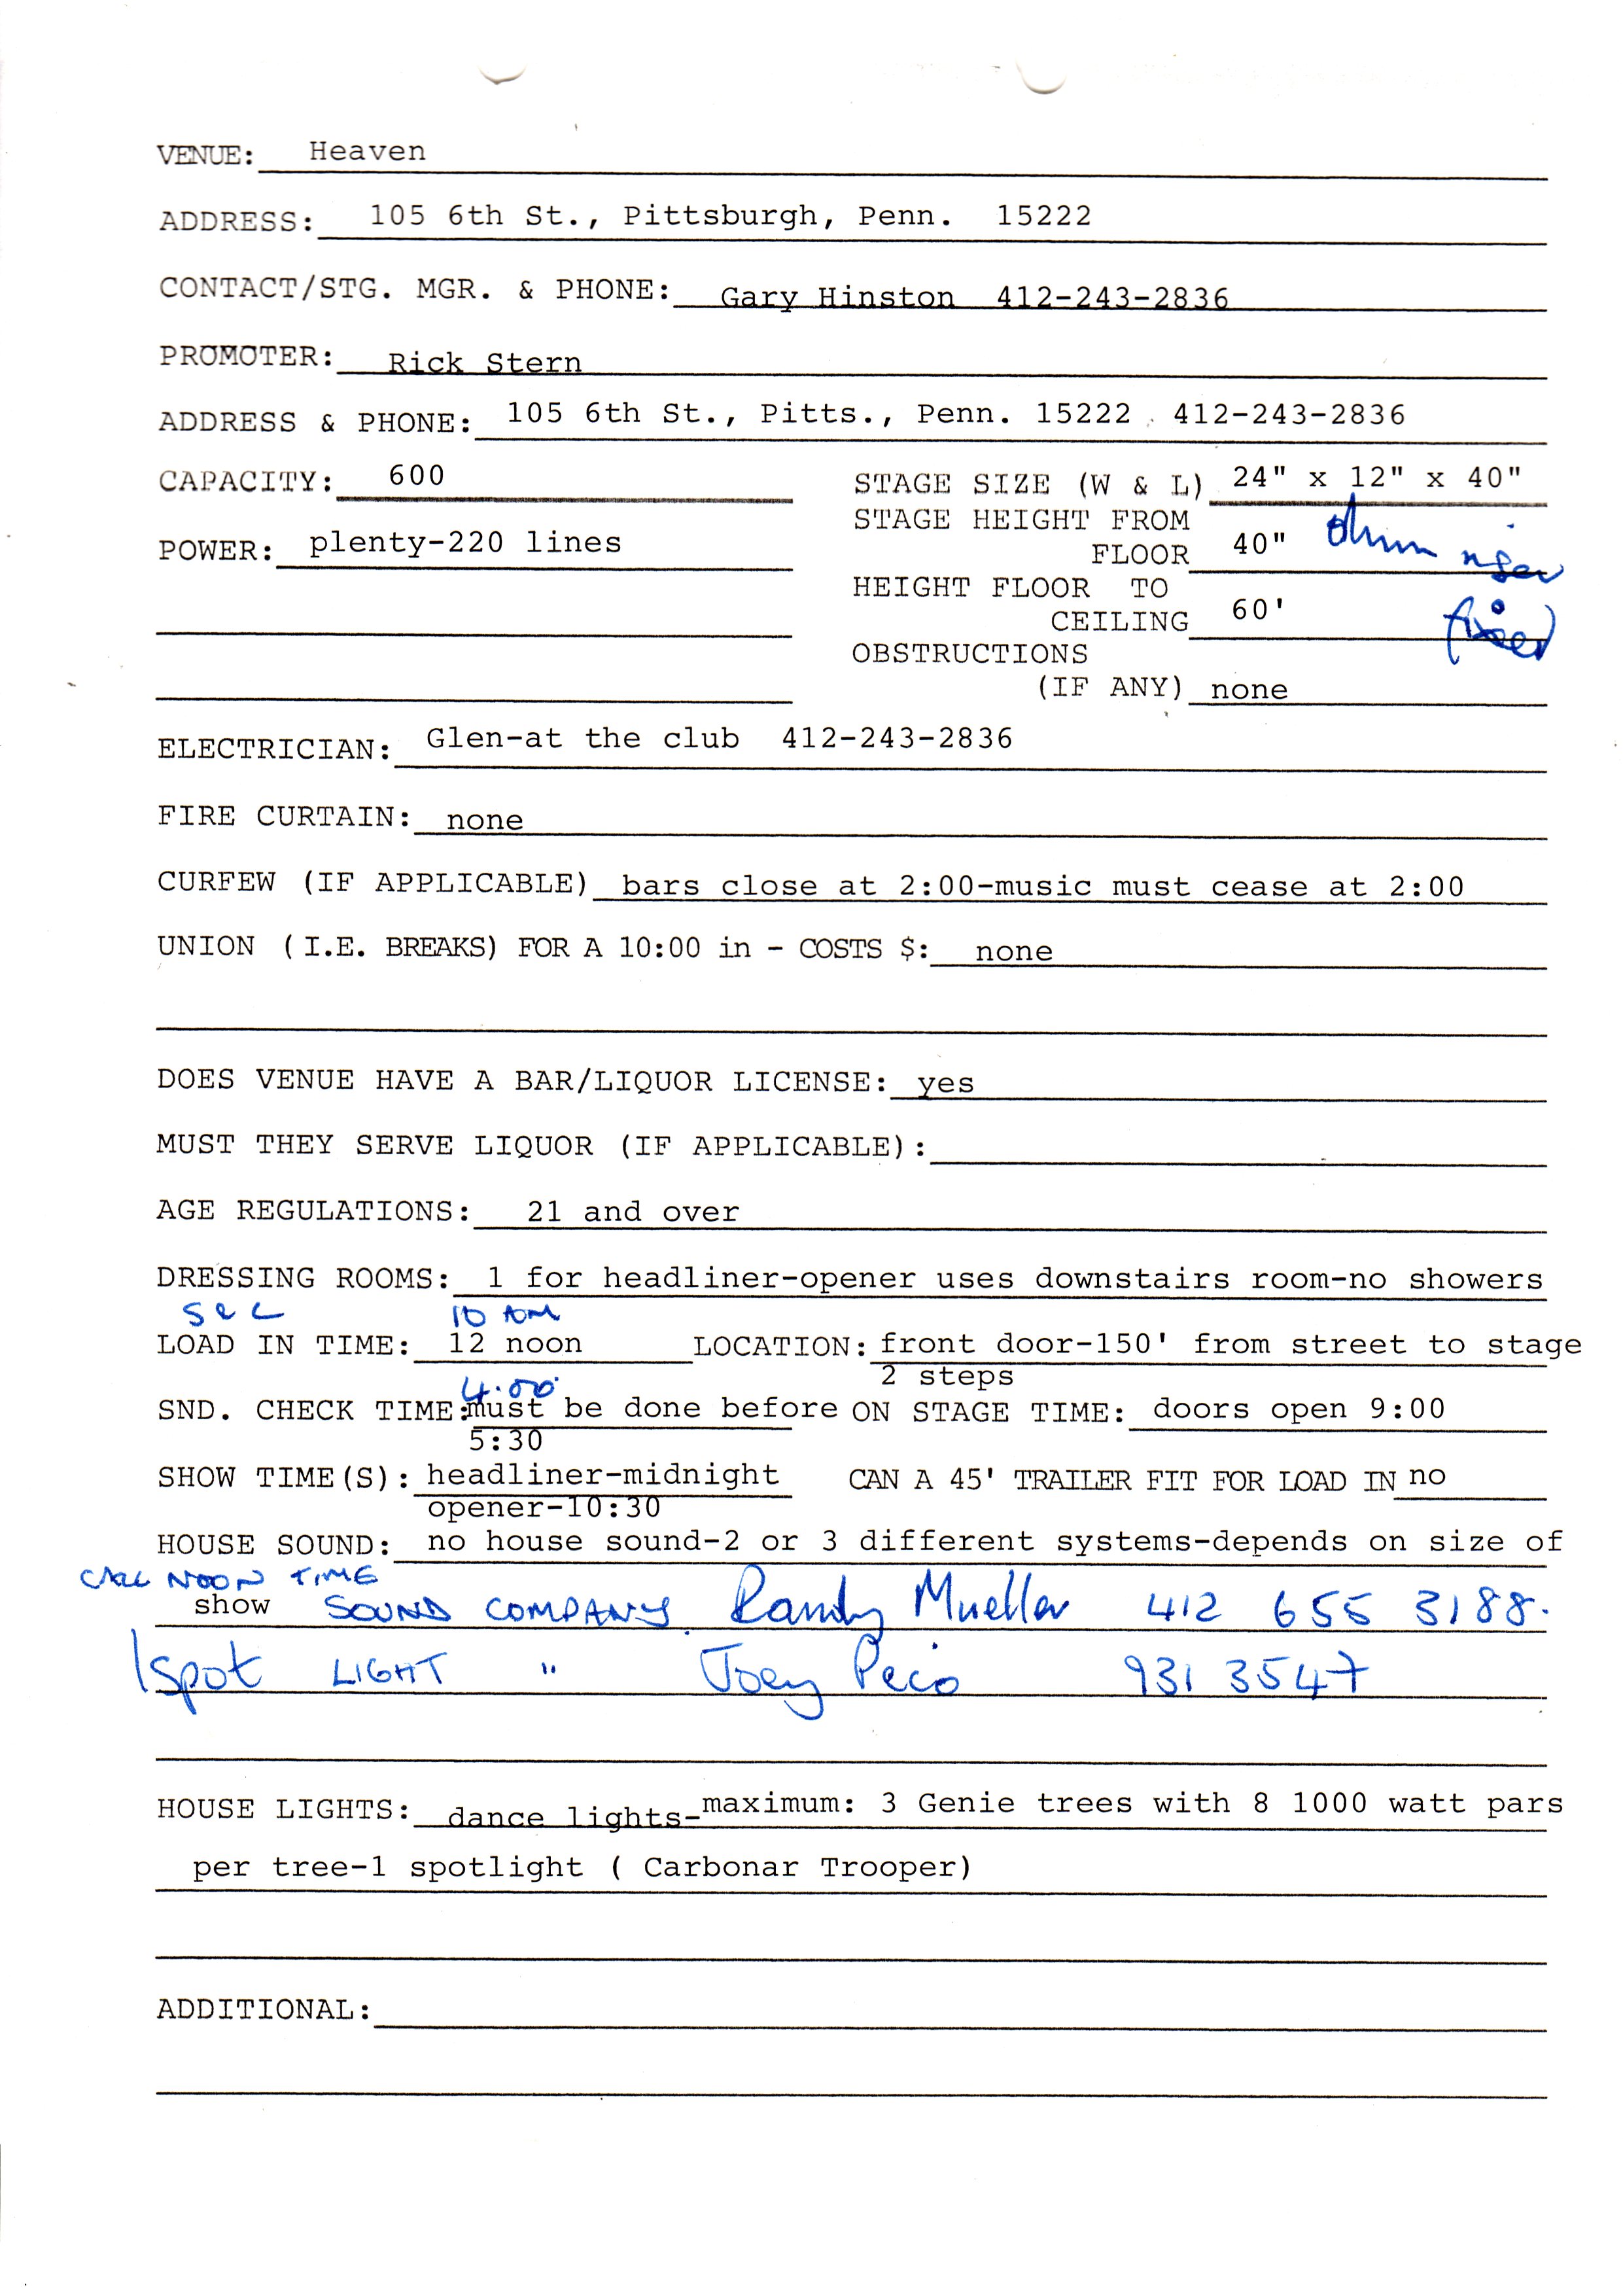 VENUE: Heaven
ADDRESS: 105 6th St., Pittsburgh, Penn. 15222
CONTACT/STG. MGR. & PHONE: Gary Hinston 412-243-2836
PROMOTER: Rick Stern
ADDRESS & PHONE: 105 6th St., Pitts., Penn. 15222 412-243-2836
CAPACITY: 600 STAGE SIZE (W & L) 24" x 12" x 40"
STAGE HEIGHT FROM
POWER: plenty-220 lines FLOOR 40" drum riser
HEIGHT FLOOR TO
CEILING 60' fixed
OBSTRUCTIONS
(IF ANY) none
ELECTRICIAN: Glen-at the club 412-243-2836
FIRE CURTAIN: none
CURFEW (IF APPLICABLE) bars close at 2:00-music must cease at 2:00
UNION (I.E. BREAKS) FOR A 10:00 in - COSTS $: none
DOES VENUE HAVE A BAR/LIQUOR LICENSE: yes
MUST THEY SERVE LIQUOR (IF APPLICABLE):
AGE REGULATIONS: 21 and over
DRESSING ROOMS: 1 for headliner-opener uses downstairs room-no showers
S & L 10 AM
LOAD IN TIME: 12 noon LOCATION: front door-150' from street to stage
2 steps
4.00
SND. CHECK TIME: must be done before ON STAGE TIME: doors open 9:00
5:30
SHOW TIME(S): headliner-midnight CAN A 45' TRAILER FIT FOR LOAD IN no
opener-10:30
HOUSE SOUND: no house sound-2 or 3 different systems-depends on size of
CALL NOON TIME
show SOUND COMPANY Randy Mueller 412 655 3188.
1 spot LIGHT " Joey Pecio 931 3547
HOUSE LIGHTS: dance lights-maximum: 3 Genie trees with 8 1000 watt pars
per tree-1 spotlight ( Carbonar Trooper)
ADDITIONAL: